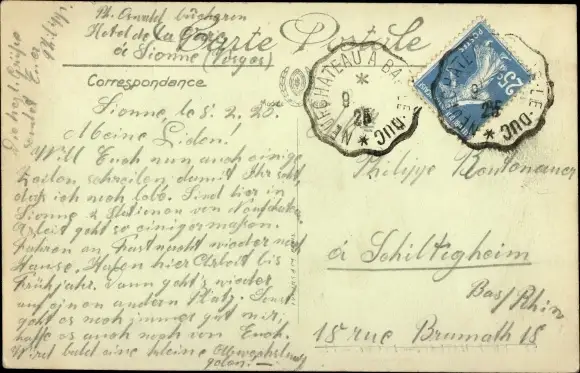 Ph. Oswald
Hotel de la Gare
à Sionne (Vosges)
Carte Postale
Correspondance
Sionne, le 8. 2. 26.
Meine Lieben!
Will Euch nun auch einige
Zeilen schreiben damit Ihr seht,
daß ich noch lebe. Sind hier in
Sionne 2 Stationen von
Arbeit geht so einigermaßen.
Fahren an Fastnacht wieder nach
Hause. Haben hier Arbeit bis
Frühjahr. Dann geht's wieder
auf einen andern Platz. Sonst
geht es noch immer gut mir,
hoffe es auch noch von Euch.
Wird bald eine kleine Abwechslung
geben. —
NEUFCHATEAU A BAR-LE-DUC
9
2
25c
POSTES
NEUFCHATEAU A BAR-LE-DUC
9
2
Philippe
à Schiltigheim
Bas/Rhin
18 rue Brumath 18